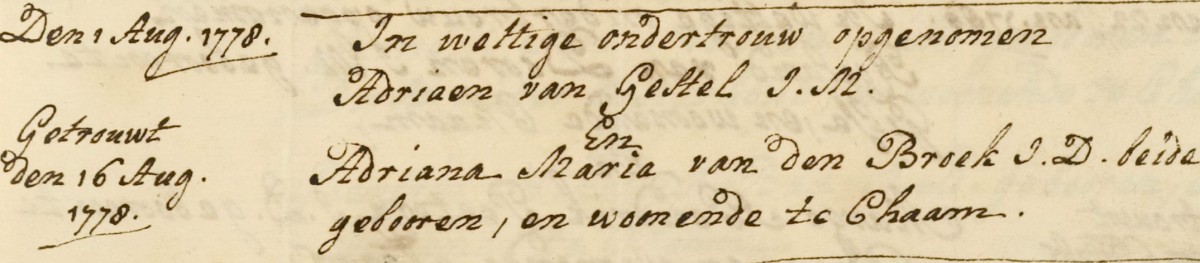 Den 1 Aug. 1778.
In wettige ondertrouw opgenomen
Adriaen van Gestel J. M.
En
Adriana Maria van den Broek J. D. beide
gebooren, en woonende te Chaam.
Getrouwt
den 16 Aug.
1778.